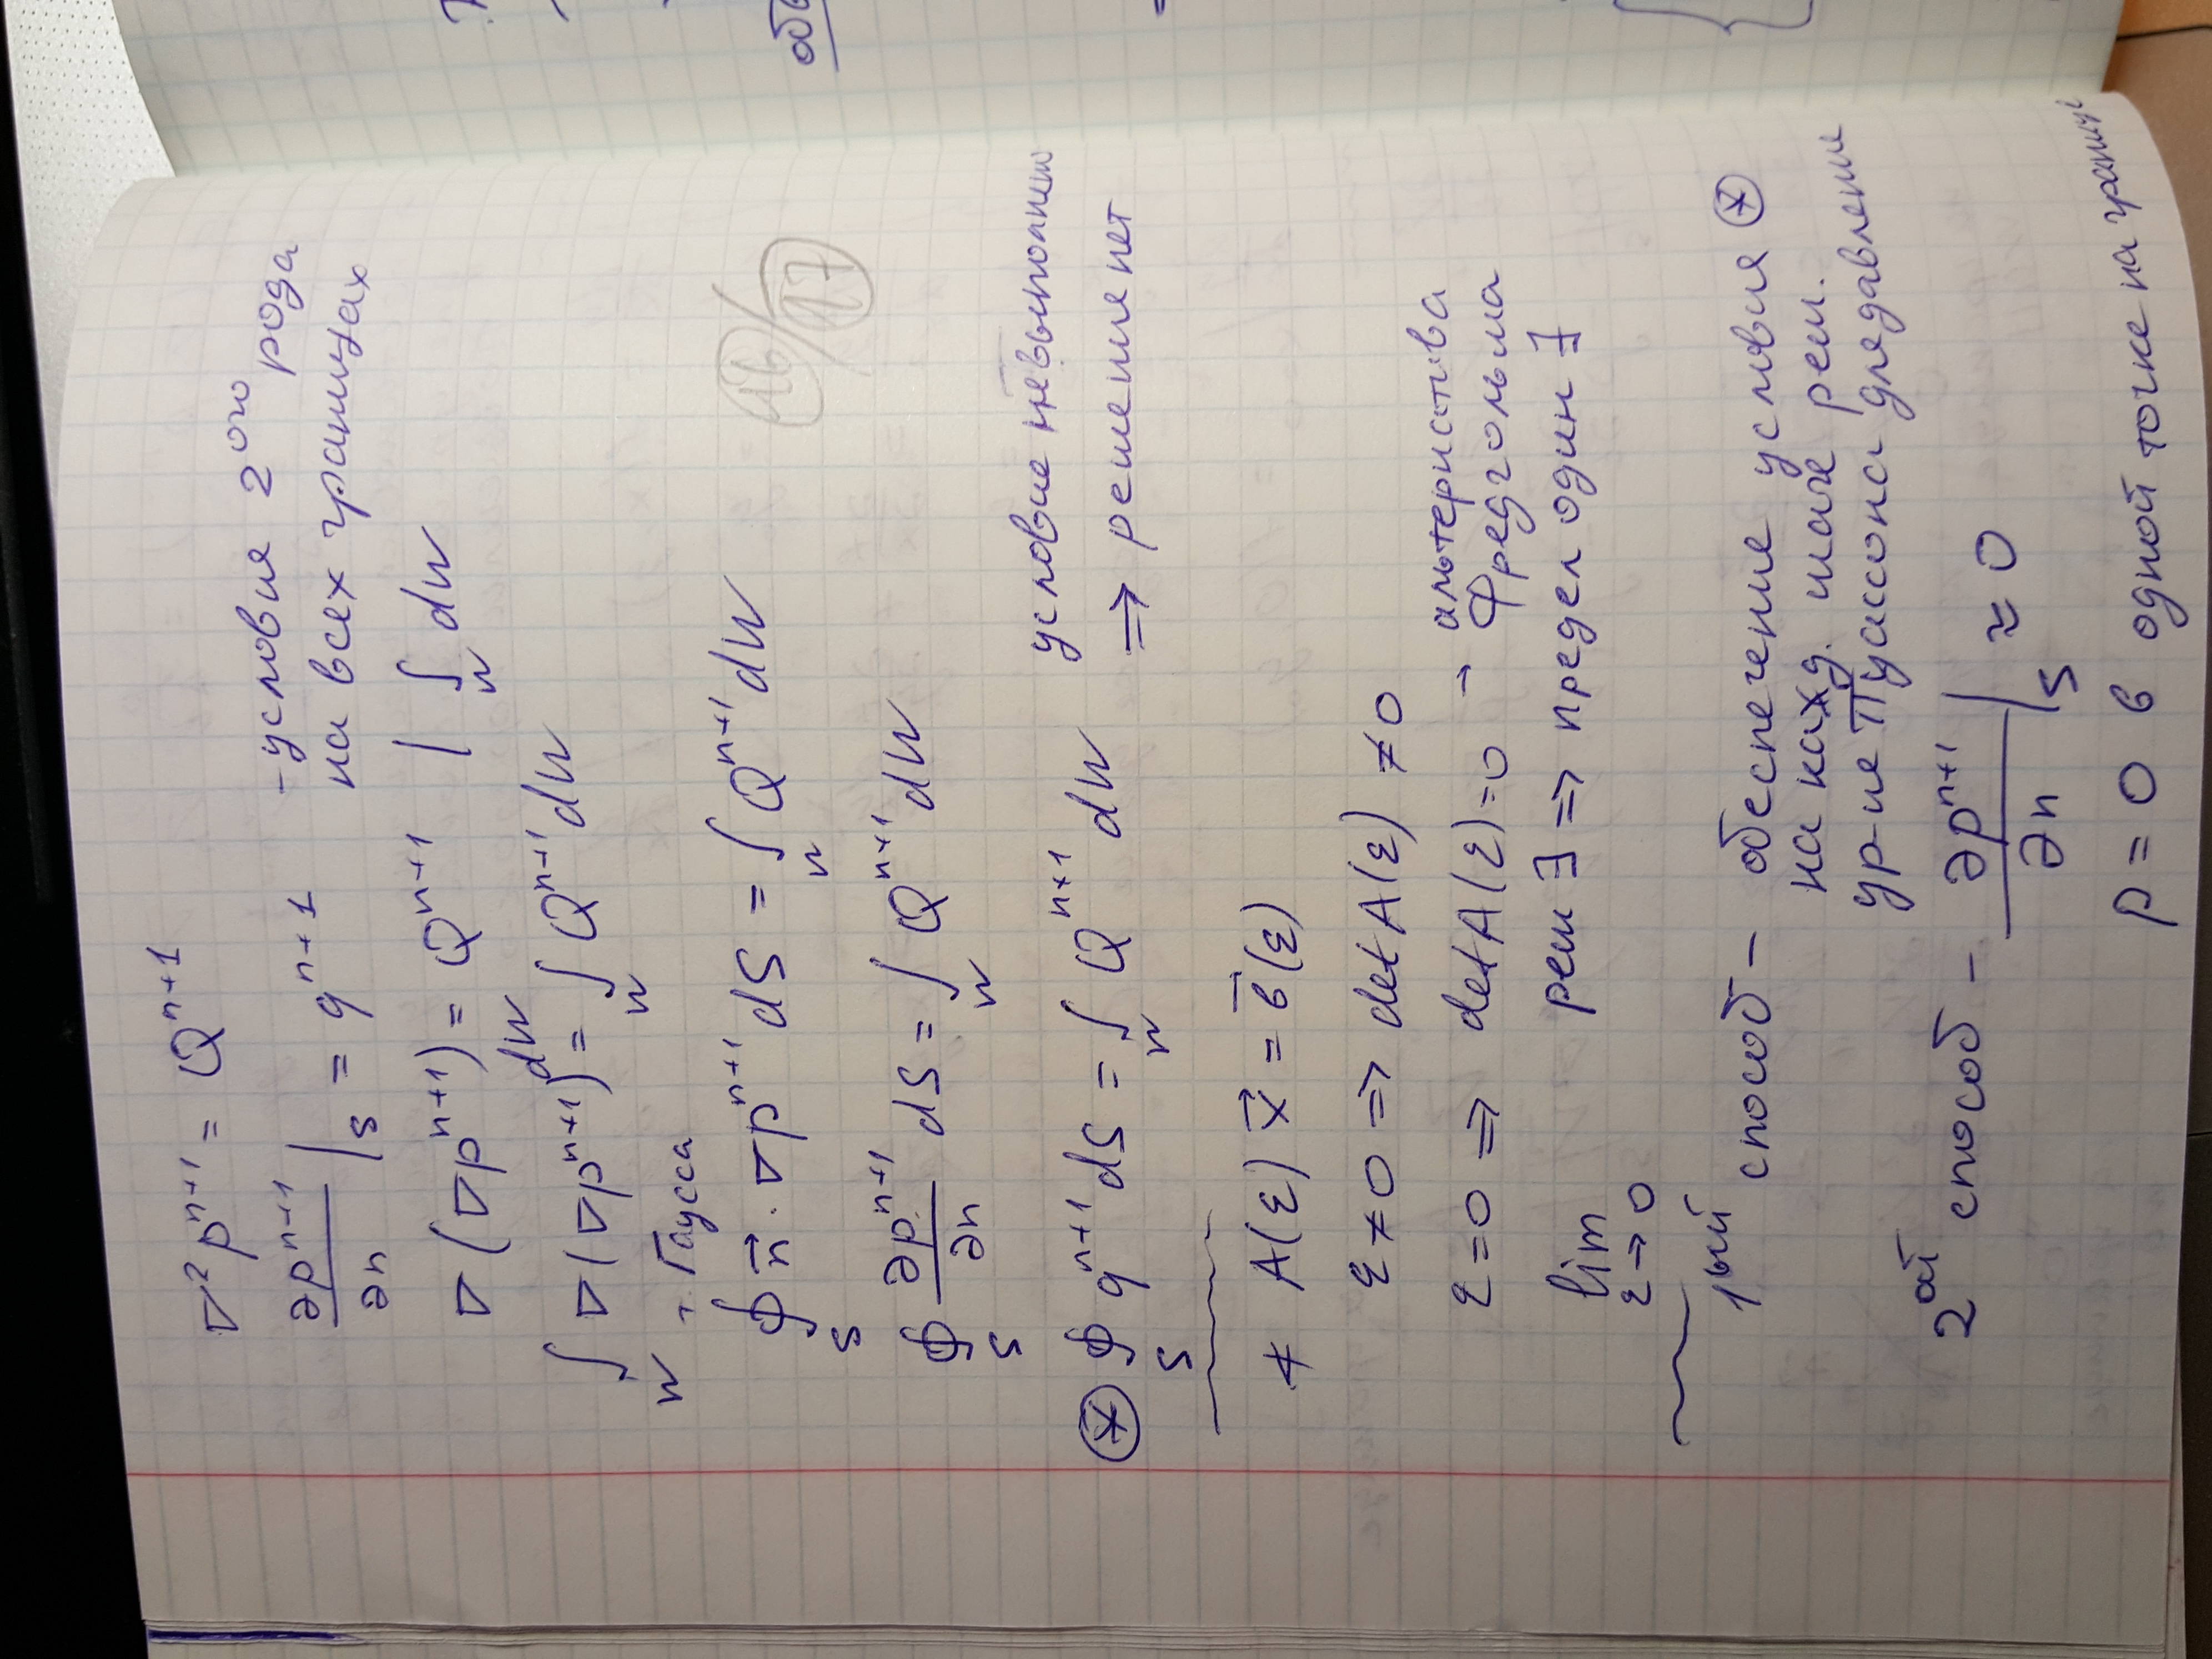 ∇² pⁿ⁺¹ = Qⁿ⁺¹
∂pⁿ⁺¹/∂n |_S = qⁿ⁺¹ - условие 2ого рода
на всех границах
∇(∇pⁿ⁺¹) = Qⁿ⁺¹ | ∫_W dW
∫_W ∇(∇pⁿ⁺¹) dW = ∫_W Qⁿ⁺¹ dW
т. Гаусса
∮_S n⃗ · ∇pⁿ⁺¹ dS = ∫_W Qⁿ⁺¹ dW
16/17
∮_S ∂pⁿ⁺¹/∂n dS = ∫_W Qⁿ⁺¹ dW
условие не выполнено
⊛ ∮_S qⁿ⁺¹ dS = ∫_W Qⁿ⁺¹ dW
⇒ решение нет
∢ A(ε) x⃗ = b⃗(ε)
ε ≠ 0 ⇒ det A(ε) ≠ 0
ε = 0 ⇒ det A(ε) = 0 → альтернатива
Фредгольма
lim ε→0 реш ∃ ⇒ предел один ∃
1ый способ – обеспечение условия ⊛
на кажд. шаге реш.
ур-ие Пуассона для давления
2ой способ – ∂pⁿ⁺¹/∂n |_S ≈ 0
p = 0 в одной точке на границе